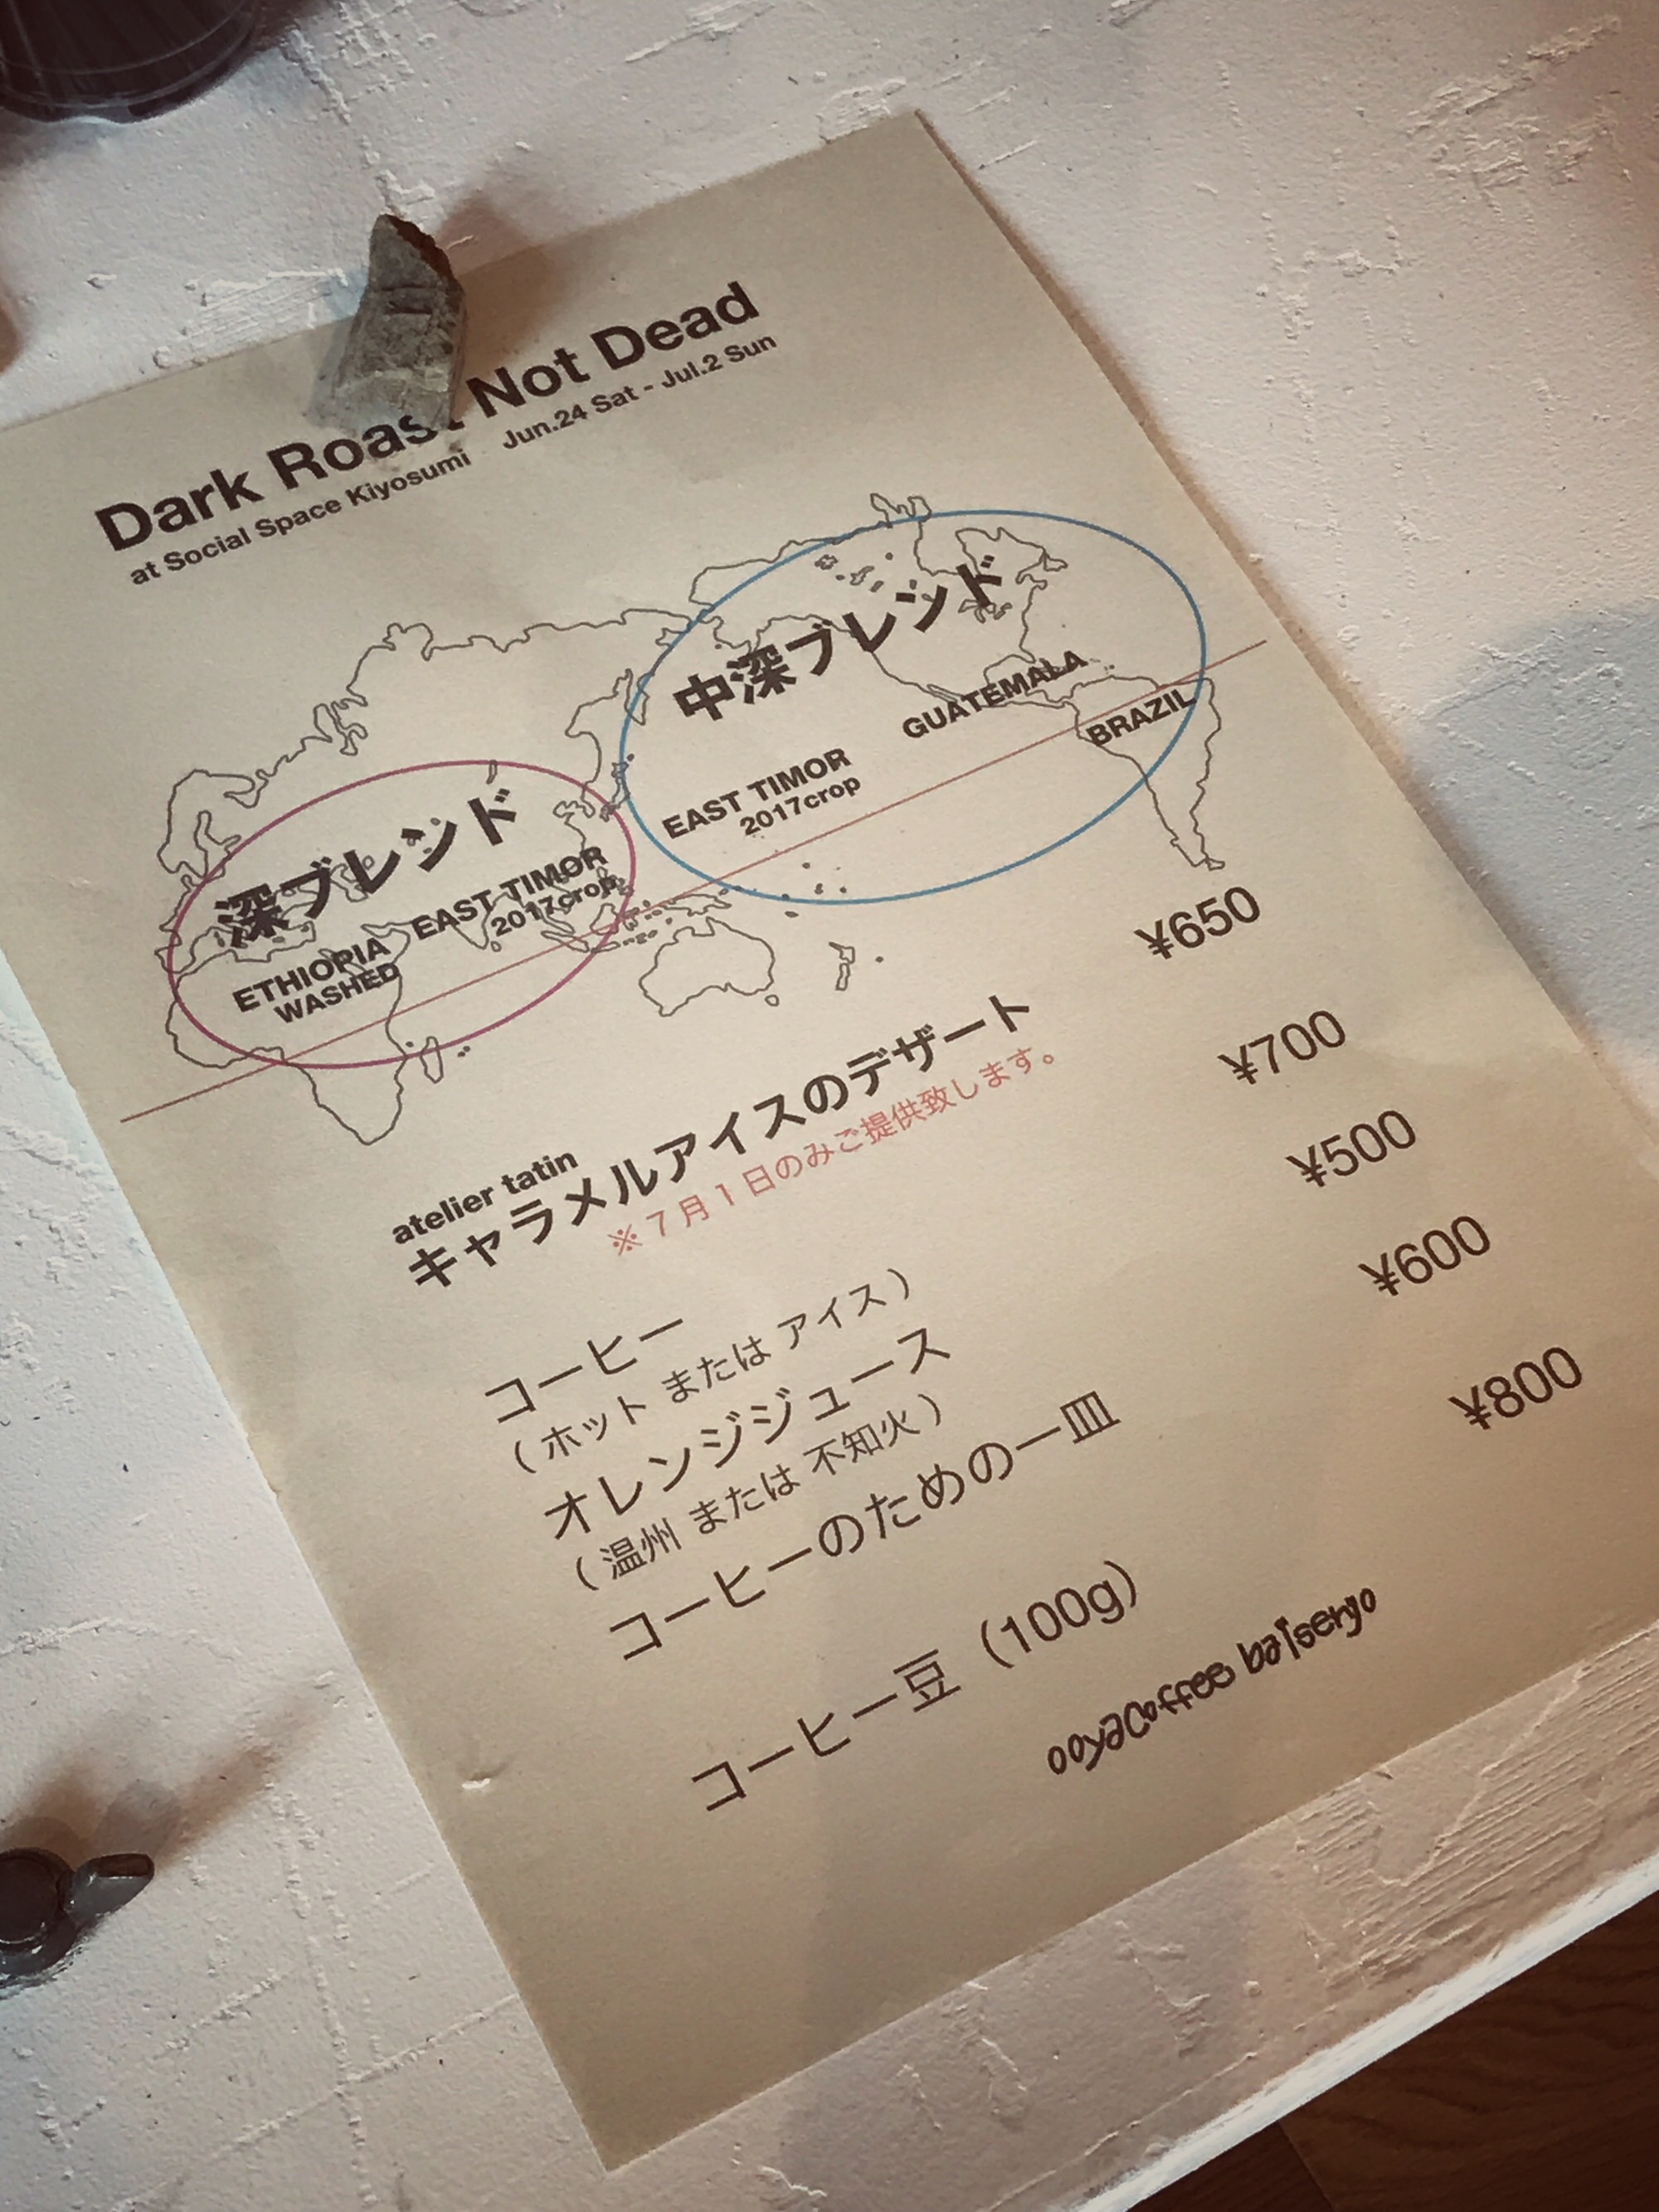 Dark Roast Not Dead
at Social Space Kiyosumi Jun.24 Sat - Jul.2 Sun
中深ブレンド
GUATEMALA
BRAZIL
EAST TIMOR
2017crop
深ブレンド
EAST TIMOR
2017crop
ETHIOPIA
WASHED
atelier tatin
キャラメルアイスのデザート ¥650
※７月１日のみご提供致します。
コーヒー ¥700
（ ホット または アイス ）
オレンジジュース ¥500
（ 温州 または 不知火 ）
コーヒーのための一皿 ¥600
コーヒー豆（100g） ¥800
ooyacoffee baisenjo